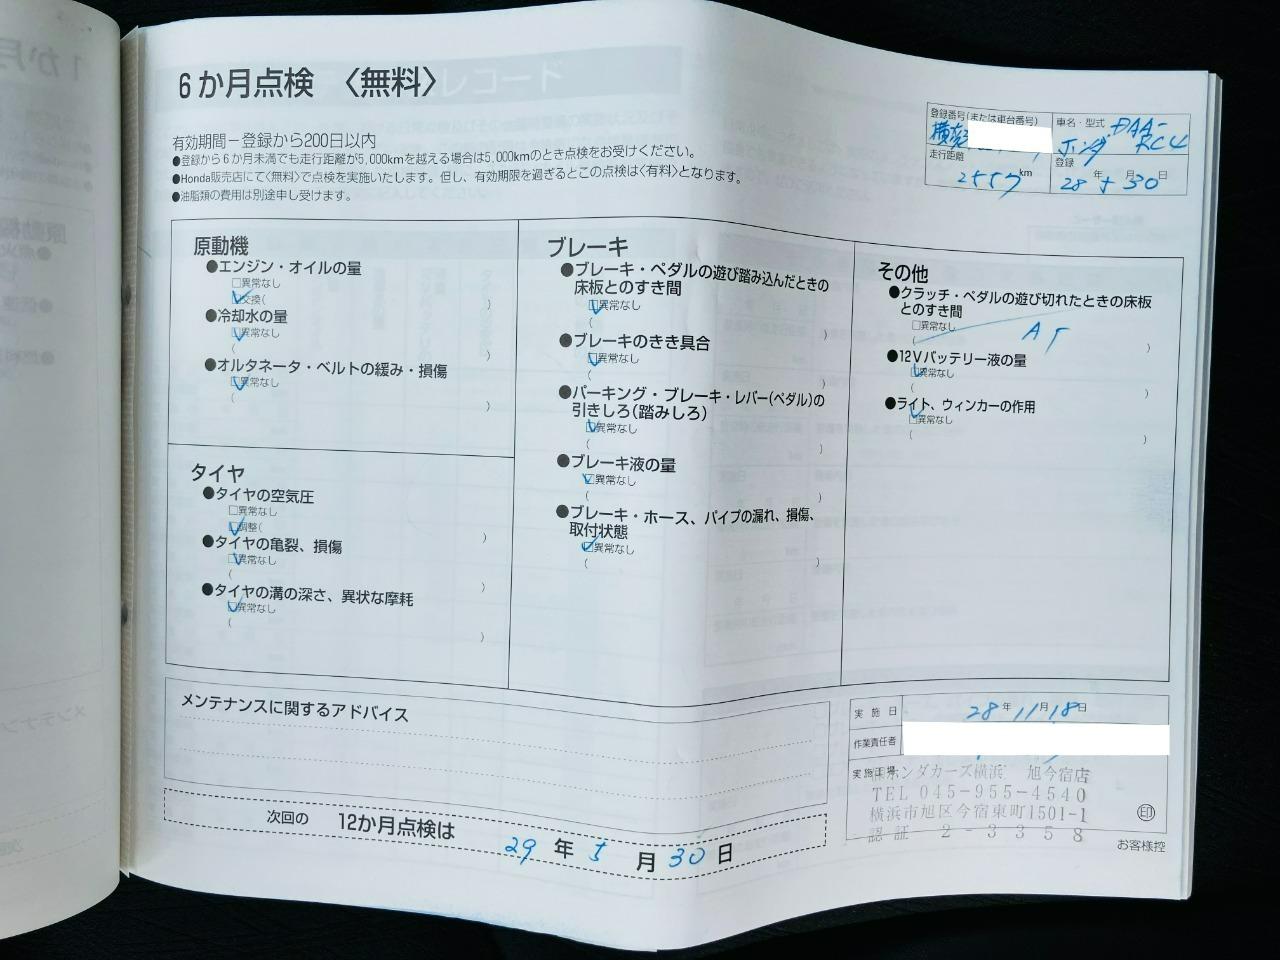 6か月点検 〈無料〉
有効期間－登録から200日以内
●登録から6か月未満でも走行距離が5,000kmを越える場合は5,000kmのとき点検をお受けください。
●Honda販売店にて〈無料〉で点検を実施いたします。但し、有効期限を過ぎるとこの点検は〈有料〉となります。
●油脂類の費用は別途申し受けます。
登録番号(または車台番号)
横浜
車名・型式
ホンダ DAA-RC4
走行距離
2557 km
登録
28年5月30日
原動機
●エンジン・オイルの量
□異常なし
☑交換( )
●冷却水の量
☑異常なし
( )
●オルタネータ・ベルトの緩み・損傷
☑異常なし
( )
タイヤ
●タイヤの空気圧
□異常なし
☑調整( )
●タイヤの亀裂、損傷
☑異常なし
( )
●タイヤの溝の深さ、異状な摩耗
☑異常なし
( )
ブレーキ
●ブレーキ・ペダルの遊び踏み込んだときの
床板とのすき間
☑異常なし
( )
●ブレーキのきき具合
☑異常なし
( )
●パーキング・ブレーキ・レバー(ペダル)の
引きしろ(踏みしろ)
☑異常なし
( )
●ブレーキ液の量
☑異常なし
( )
●ブレーキ・ホース、パイプの漏れ、損傷、
取付状態
☑異常なし
( )
その他
●クラッチ・ペダルの遊び切れたときの床板
とのすき間
□異常なし
( AT )
●12Vバッテリー液の量
☑異常なし
( )
●ライト、ウィンカーの作用
☑異常なし
( )
メンテナンスに関するアドバイス
次回の 12か月点検は
29年5月30日
実施日 28年11月18日
作業責任者
実施工場
㈱ホンダカーズ横浜 旭今宿店
TEL 045-955-4540
横浜市旭区今宿東町1501-1
認証 2-3358
印
お客様控